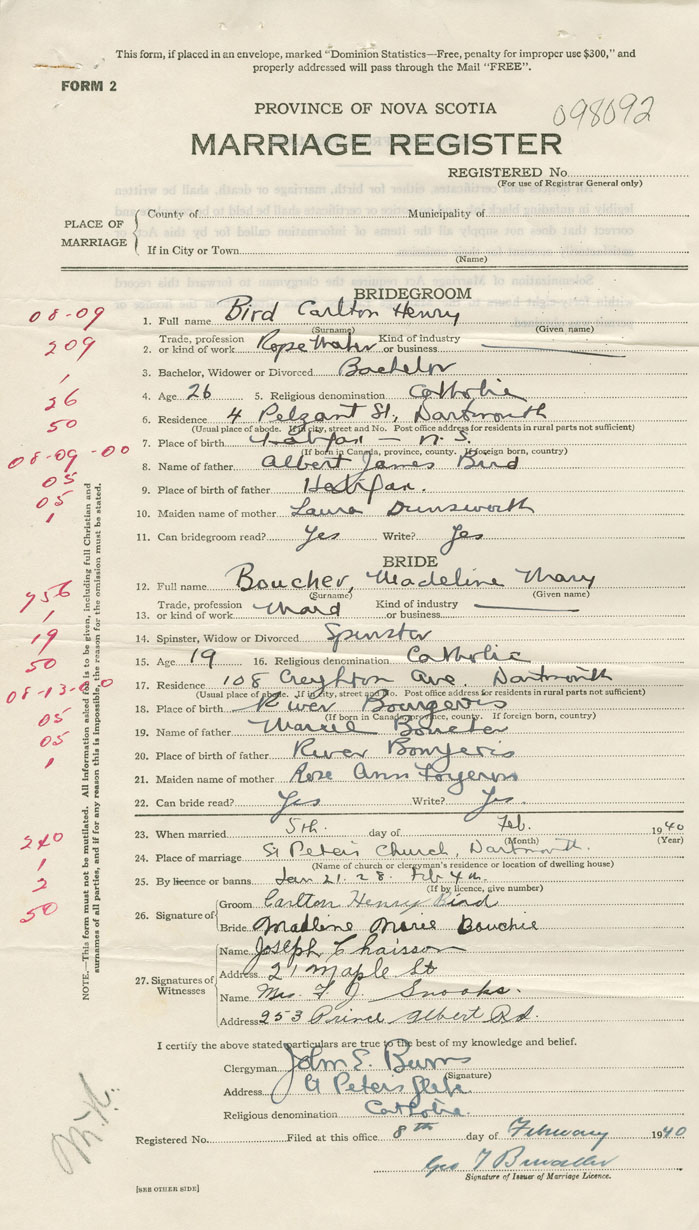 This form, if placed in an envelope, marked "Dominion Statistics—Free, penalty for improper use $300," and
properly addressed will pass through the Mail "FREE".
FORM 2
PROVINCE OF NOVA SCOTIA
098092
MARRIAGE REGISTER
REGISTERED No.
(For use of Registrar General only)
PLACE OF MARRIAGE
County of
Municipality of
If in City or Town
(Name)
BRIDEGROOM
08-09
1. Full name Bird Carlton Henry
(Surname) (Given name)
209
2. Trade, profession or kind of work Rope Maker Kind of industry or business
1
3. Bachelor, Widower or Divorced Bachelor
26
4. Age 26 5. Religious denomination Catholic
50
6. Residence 4 Pelzant St, Dartmouth
(Usual place of abode. If in city, street and No. Post office address for residents in rural parts not sufficient)
08-09-00
7. Place of birth Halifax — N.S.
(If born in Canada, province, county. If foreign born, country)
05
8. Name of father Albert James Bird
05
9. Place of birth of father Halifax.
1
10. Maiden name of mother Laura Dunsworth
11. Can bridegroom read? Yes Write? Yes
BRIDE
756
12. Full name Boucher, Madeline Mary
(Surname) (Given name)
1
13. Trade, profession or kind of work Maid Kind of industry or business
19
14. Spinster, Widow or Divorced Spinster
50
15. Age 19 16. Religious denomination Catholic
08-13-00
17. Residence 108 Creighton Ave. Dartmouth
(Usual place of abode. If in city, street and No. Post office address for residents in rural parts not sufficient)
05
18. Place of birth River Bourgeois
(If born in Canada, province, county. If foreign born, country)
05
19. Name of father Boucher
1
20. Place of birth of father River Bourgeois
21. Maiden name of mother Rose Ann
22. Can bride read? Yes Write? Yes.
240
23. When married 5th. day of Feb. 1940
(Month) (Year)
1
24. Place of marriage St Peter's Church, Dartmouth.
(Name of church or clergyman's residence or location of dwelling house)
2
25. By licence or banns Jan 21. 28. Feb 4th.
(If by licence, give number)
50
26. Signature of
Groom Carlton Henry Bird
Bride Madline Marie Bouchie
27. Signatures of Witnesses
Name Joseph Chaisson
Address 21 Maple St
Name Mrs. F. J. Snooks.
Address 253 Prince Albert Rd.
I certify the above stated particulars are true to the best of my knowledge and belief.
Clergyman John E. Burns
(Signature)
Address St Peter's Glebe
Religious denomination Catholic.
Registered No. Filed at this office 8th day of February 1940
Geo T
Signature of Issuer of Marriage Licence.
[SEE OTHER SIDE]
NOTE.—This form must not be mutilated. All information asked for is to be given, including full Christian and
surnames of all parties, and if for any reason this is impossible, the reason for the omission must be stated.